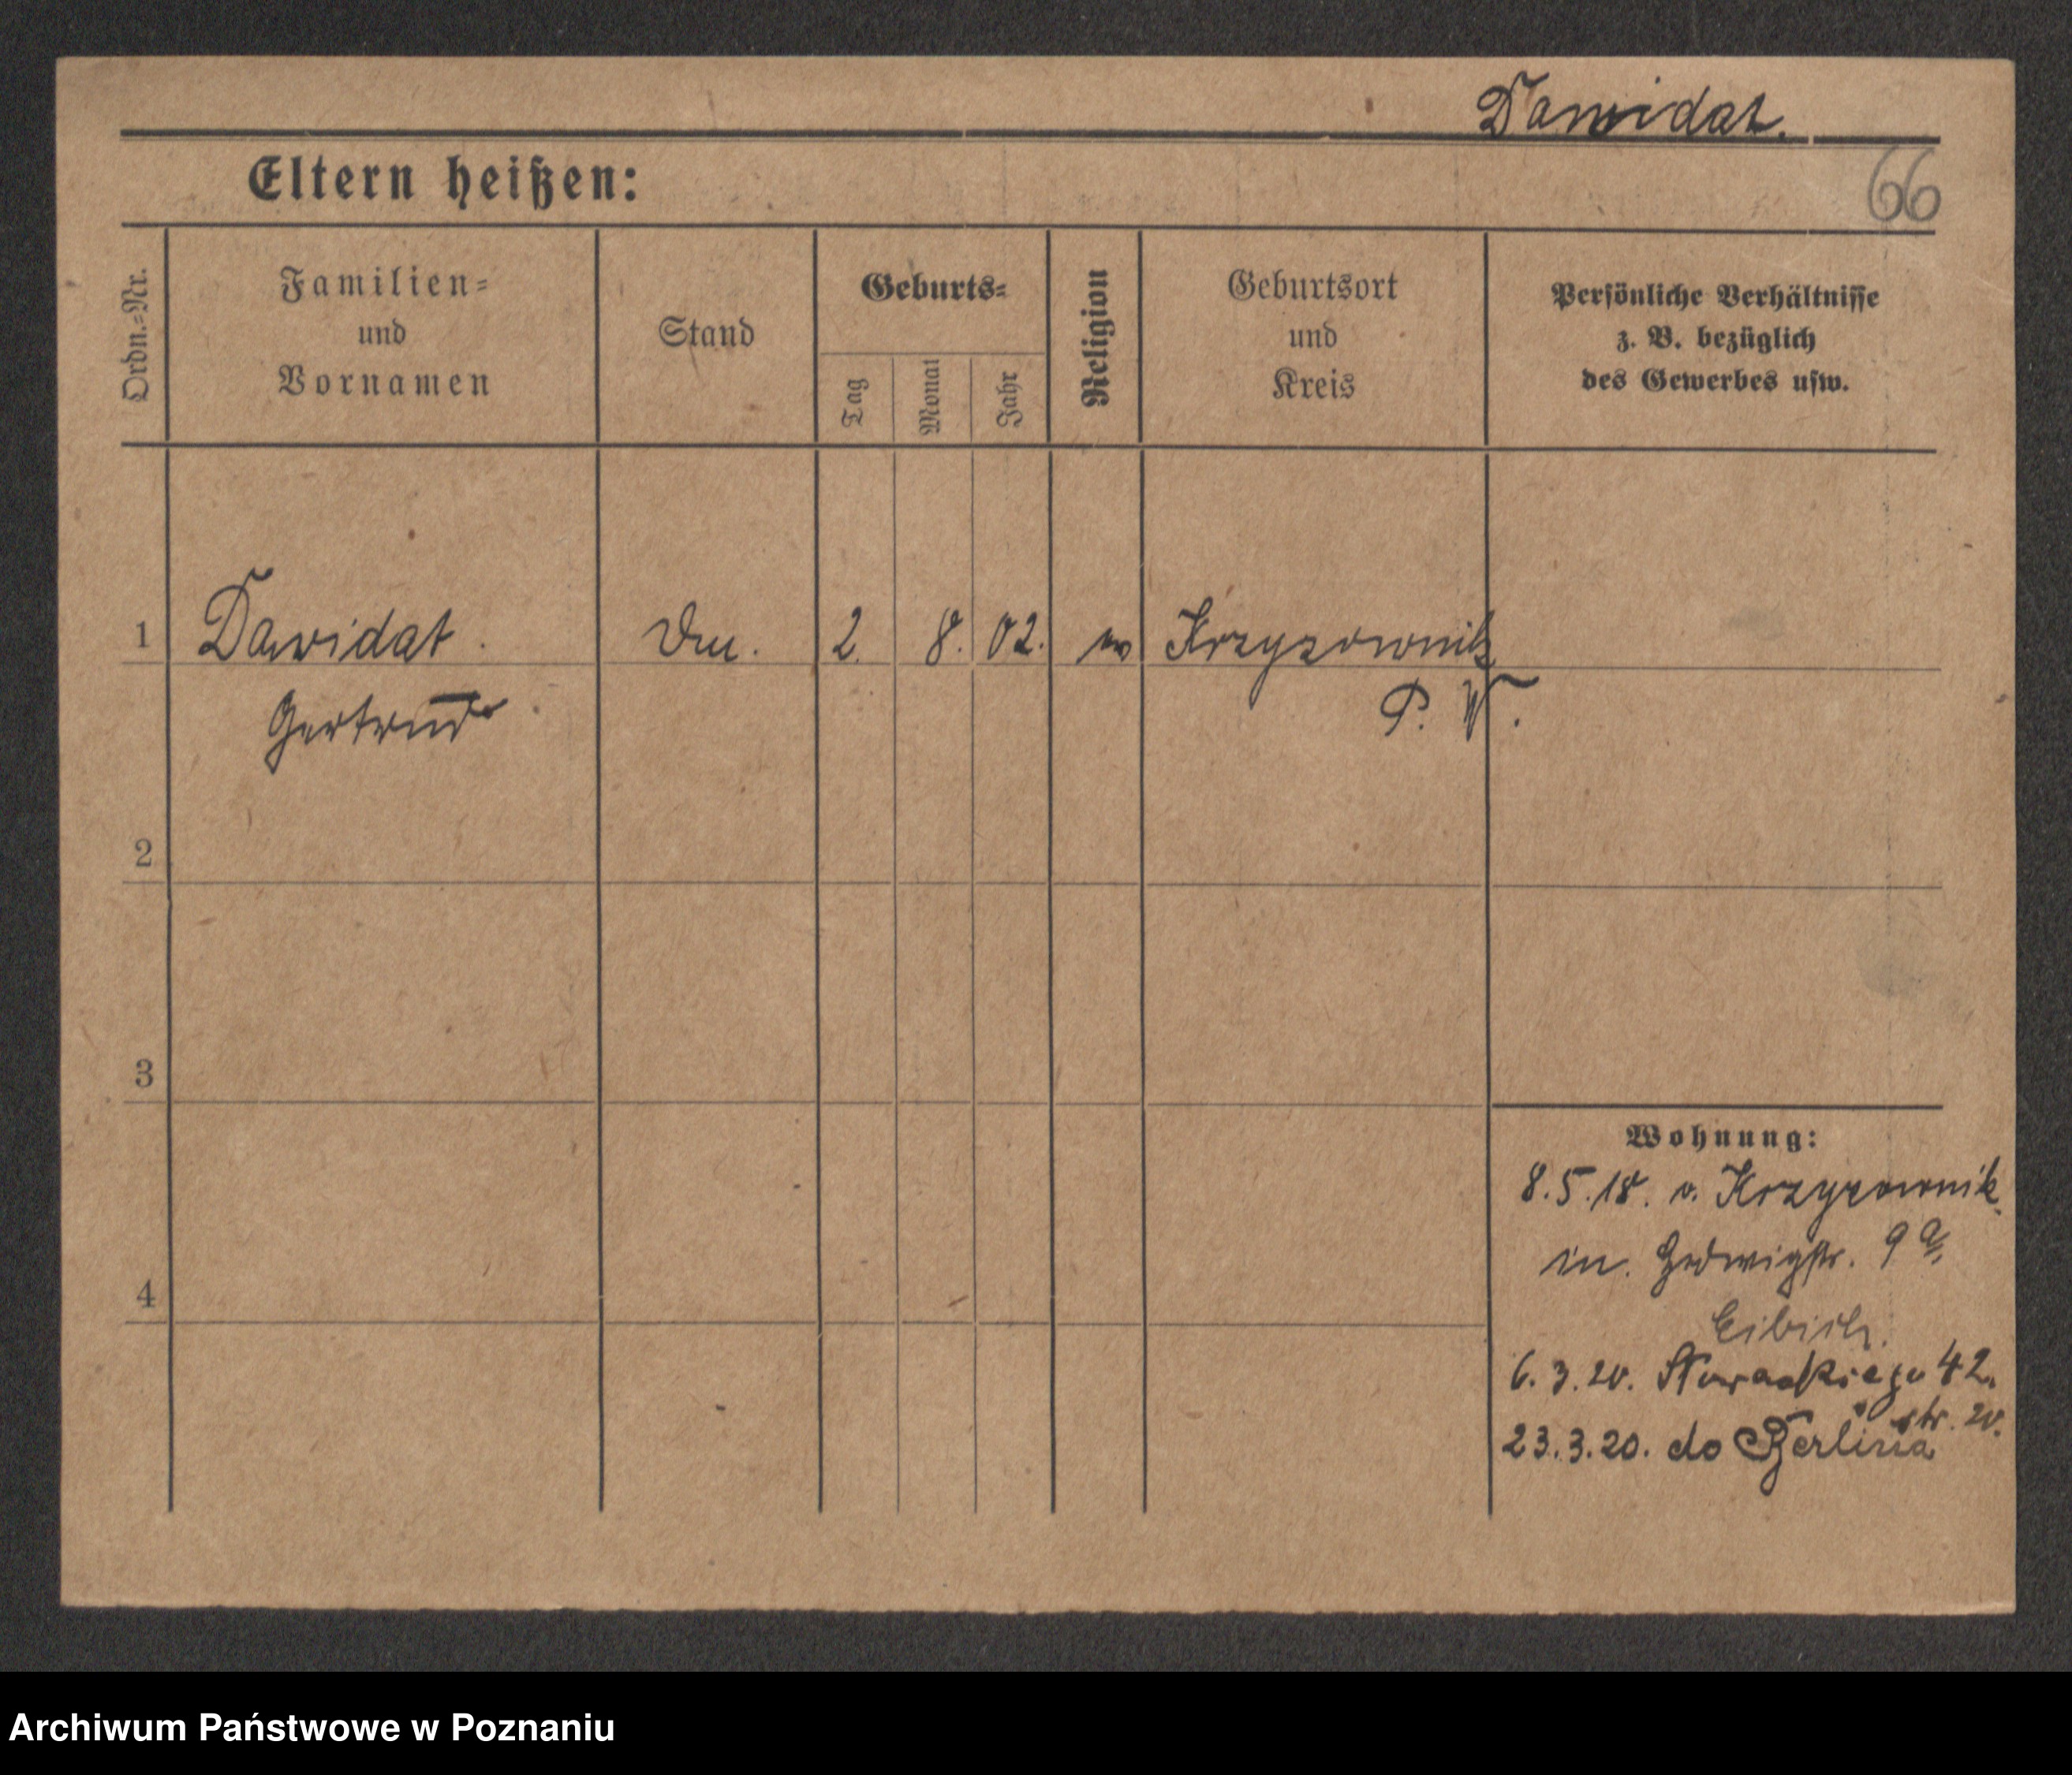 Dawidat.
Eltern heißen:
66
Ordn.-Nr.
Familien-
und
Vornamen
Stand
Geburts-
Tag
Monat
Jahr
Religion
Geburtsort
und
Kreis
Persönliche Verhältnisse
z. B. bezüglich
des Gewerbes usw.
1 Dawidat. 2. 8. 02. ev Krzyzownik
Gertrud P. W.
2
3
4
Wohnung:
8.5.18. v. Krzyzownik
in. Hedwigstr. 9a
6.3.20. 42.
23.3.20. do Berlina
Archiwum Państwowe w Poznaniu